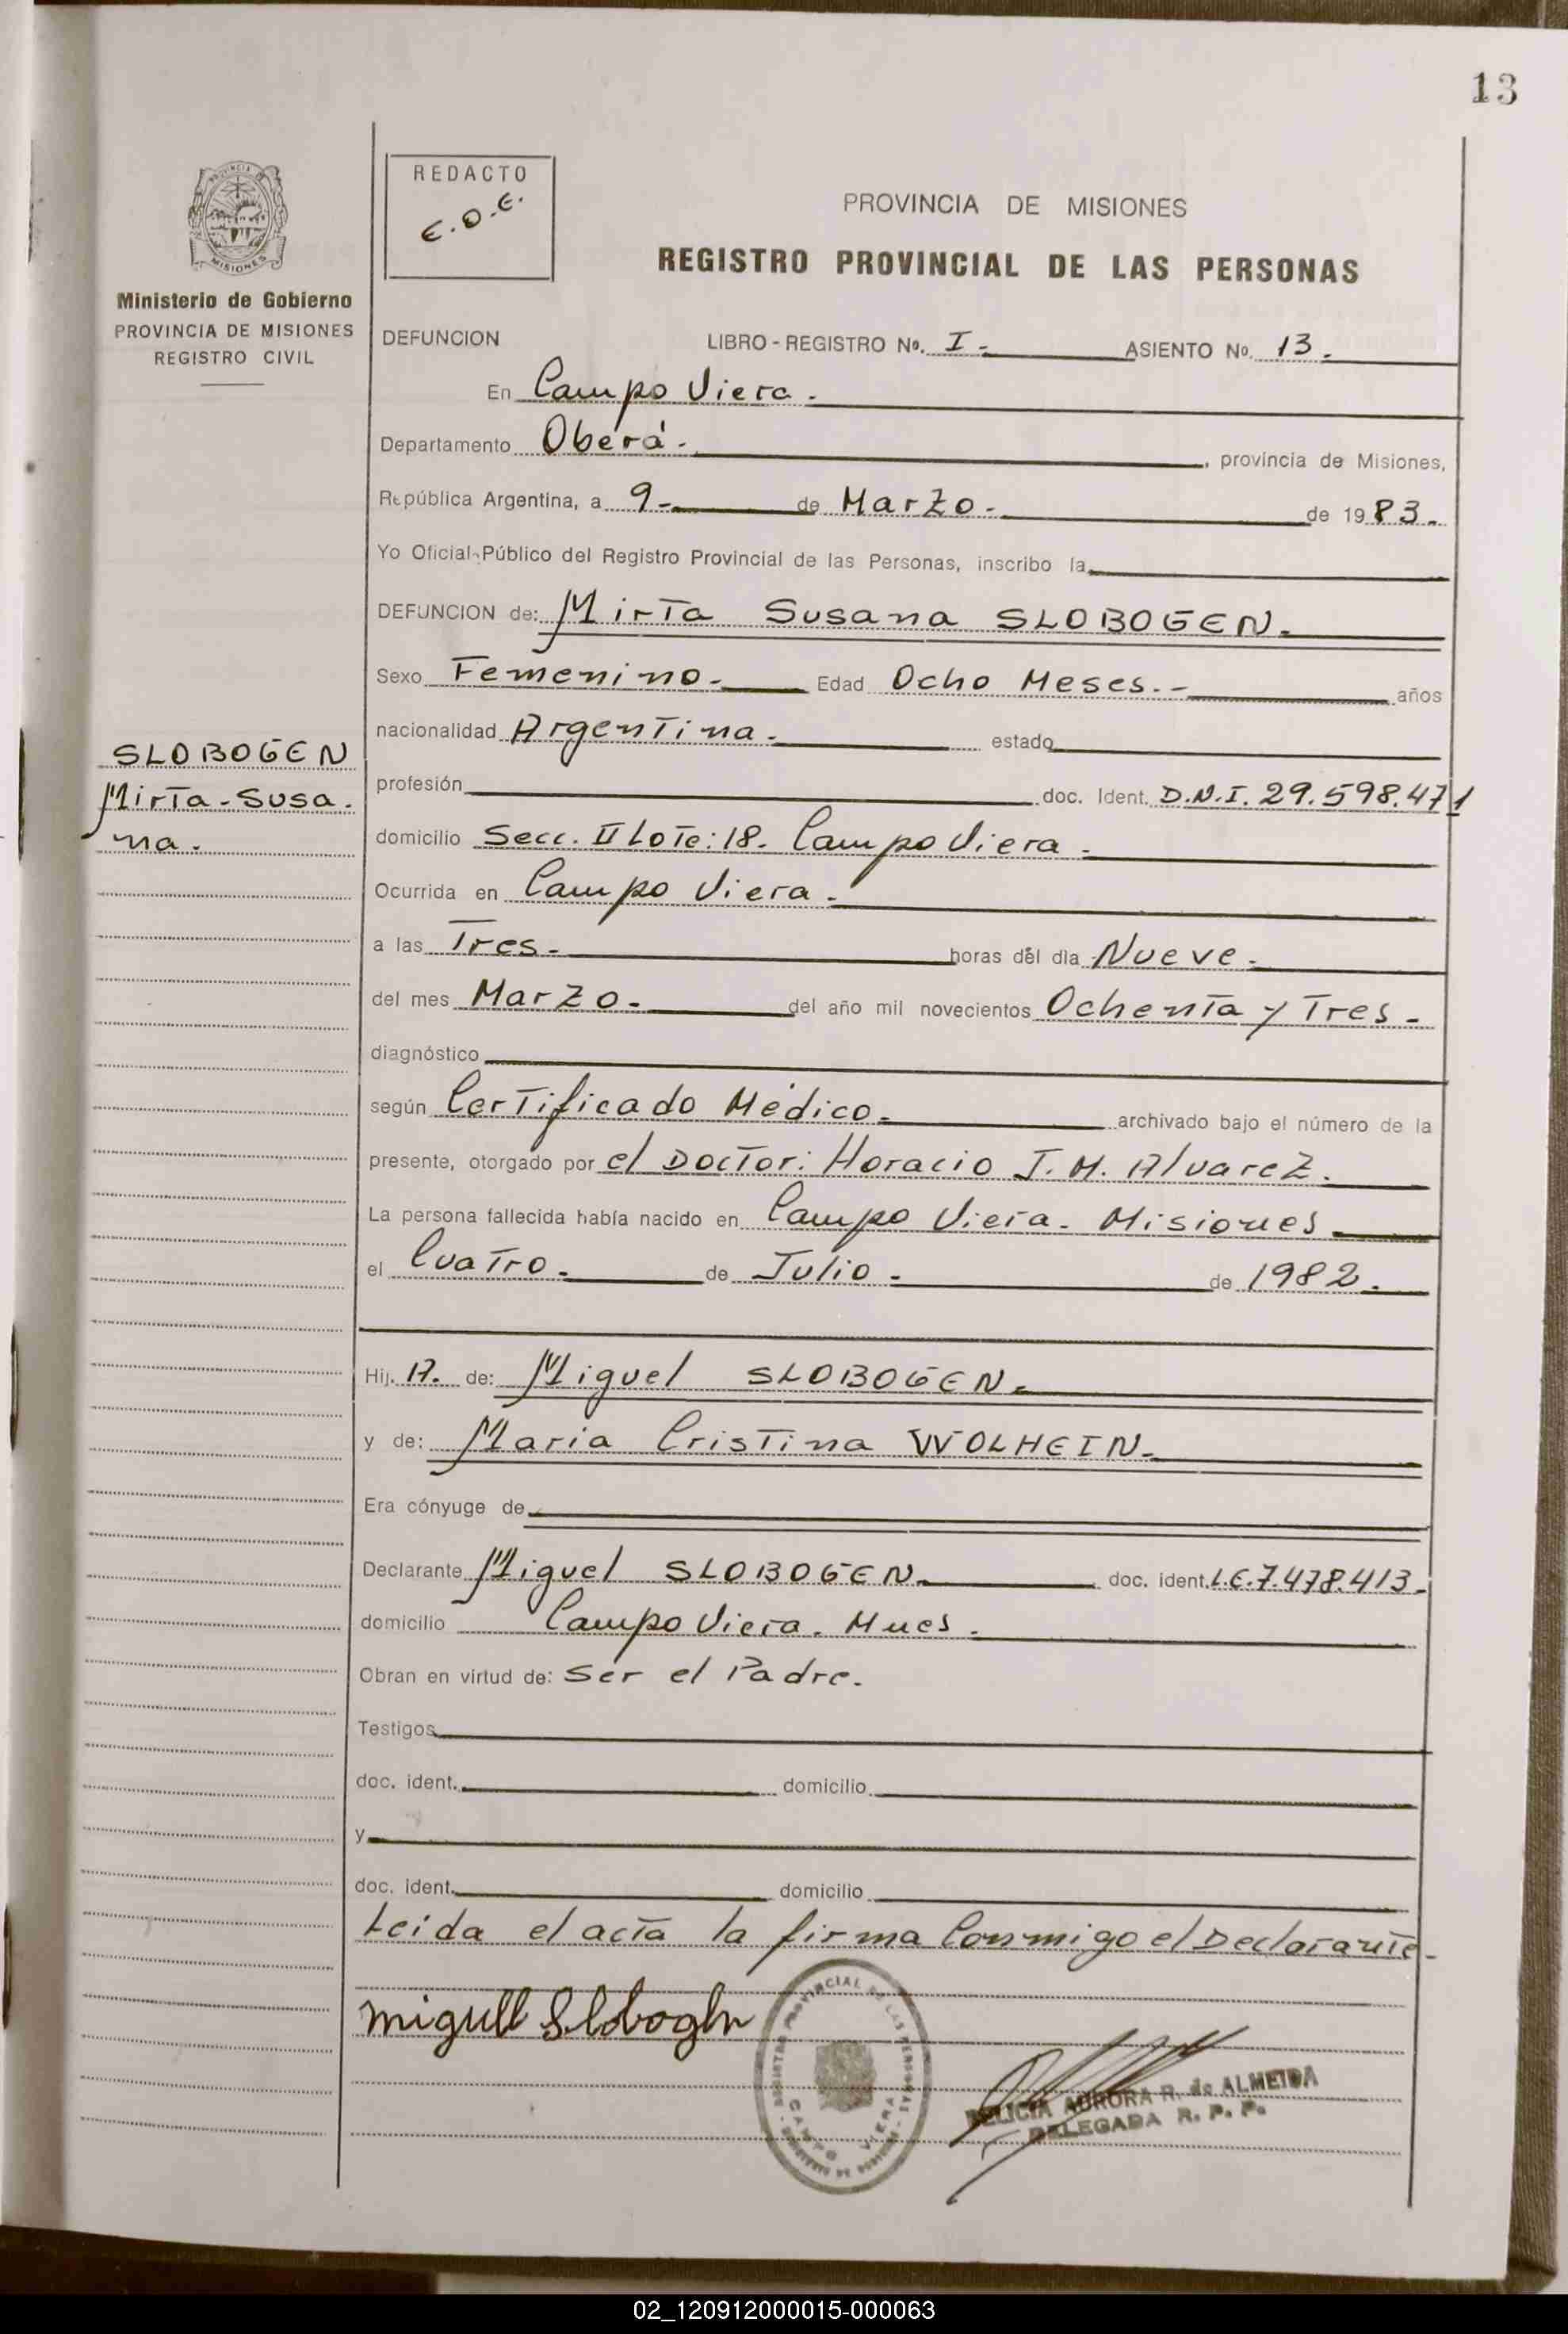 13
REDACTO
E.O.E.
PROVINCIA DE MISIONES
REGISTRO PROVINCIAL DE LAS PERSONAS
MISIONES
Ministerio de Gobierno
PROVINCIA DE MISIONES
REGISTRO CIVIL
DEFUNCION LIBRO - REGISTRO No. I - ASIENTO No. 13.
En Campo Viera.
Departamento Oberá. , provincia de Misiones,
República Argentina, a 9- de Marzo - de 1983.
Yo Oficial Público del Registro Provincial de las Personas, inscribo la
DEFUNCION de: Mirta Susana SLOBOGEN.
Sexo Femenino. Edad Ocho Meses. - años
nacionalidad Argentina. estado
SLOBOGEN
Mirta-Susa.
na.
profesión doc. Ident. D.N.I. 29.598.471
domicilio Secc. II Lote: 18. Campo Viera.
Ocurrida en Campo Viera.
a las Tres. horas del dia Nueve.
del mes Marzo. del año mil novecientos Ochenta y Tres.
diagnóstico
según Certificado Médico. archivado bajo el número de la
presente, otorgado por el Doctor: Horacio J. M. Alvarez.
La persona fallecida había nacido en Campo Viera. Misiones
el Cuatro. de Julio. de 1982.
Hij. A. de: Miguel SLOBOGEN.
y de: Maria Cristina WOLHEIN.
Era cónyuge de
Declarante Miguel SLOBOGEN. doc. ident. L.E. 7.478.413.
domicilio Campo Viera. Mnes.
Obran en virtud de: Ser el Padre.
Testigos
doc. ident. domicilio
y
doc. ident. domicilio
Leida el acta la firma Conmigo el Declarante.
REGISTRO PROVINCIAL DE LAS PERSONAS
CAMPO VIERA
DELICIA AURORA R. de ALMEIDA
DELEGADA R. P. P.
02_120912000015-000063